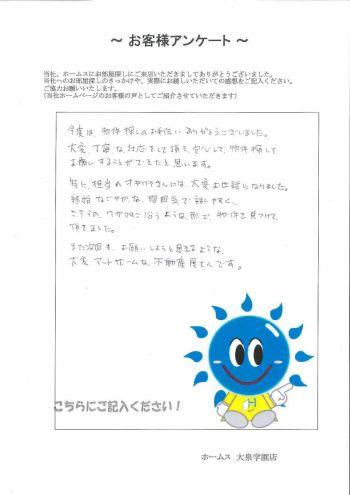 ～ お客様アンケート ～
当社、ホームスにお部屋探しにご来店いただきましてありがとうございました。
当社へのお部屋探しのきっかけや、実際にお越しいただいての感想をご記入ください。
ご協力お願いいたします。
(当社ホームページのお客様の声としてご紹介させていただきます)
今度は、物件探しのお手伝いありがとうございました。
大変、丁寧な対応をして頂き、安心して、物件探しを
お願いすることができたと思います。
特に、担当のオギワラさんには、大変お世話になりました。
終始 なごやかな、雰囲気で 話しやすく、
こちらの ワガママに沿うような形で、物件を見つけて
頂きました。
また次回も、お願いしようと思えるような、
大変 アットホームな、不動産屋さんです。
こちらにご記入ください！
ホームス 大泉学園店